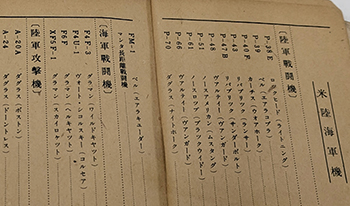 米陸海軍機
〔陸軍戰鬪機〕
P-38E ロッキード(ライトニング)
P-39 ベル(エアラコブラ)
P-40F カーチス(ウオアホーク)
P-43 リパブリック(ランサー)
P-47B リパブリック(サンダーボルト)
P-48
P-51 ノースアメリカン(ムスタング)
P-61 ノースロップ(ブラックウイドー)
P-66 ヴァルティー(ヴァンガード)
P-70 ダグラス(ナイトホーク)
FM-1 ベル(エアラキューダー)
マンタ長距離戰鬪機
〔海軍戰鬪機〕
F4F-3 グラマン(ワイルドキャット)
F4U-1 ヴォート・シコルスキー(コルセア)
F6F グラマン(ヘルキャット)
XF5F-1 グラマン(スカイロケット)
〔陸軍攻撃機〕
A-20A ダグラス(ボストン)
A-24 ダグラス(ドーントレス)